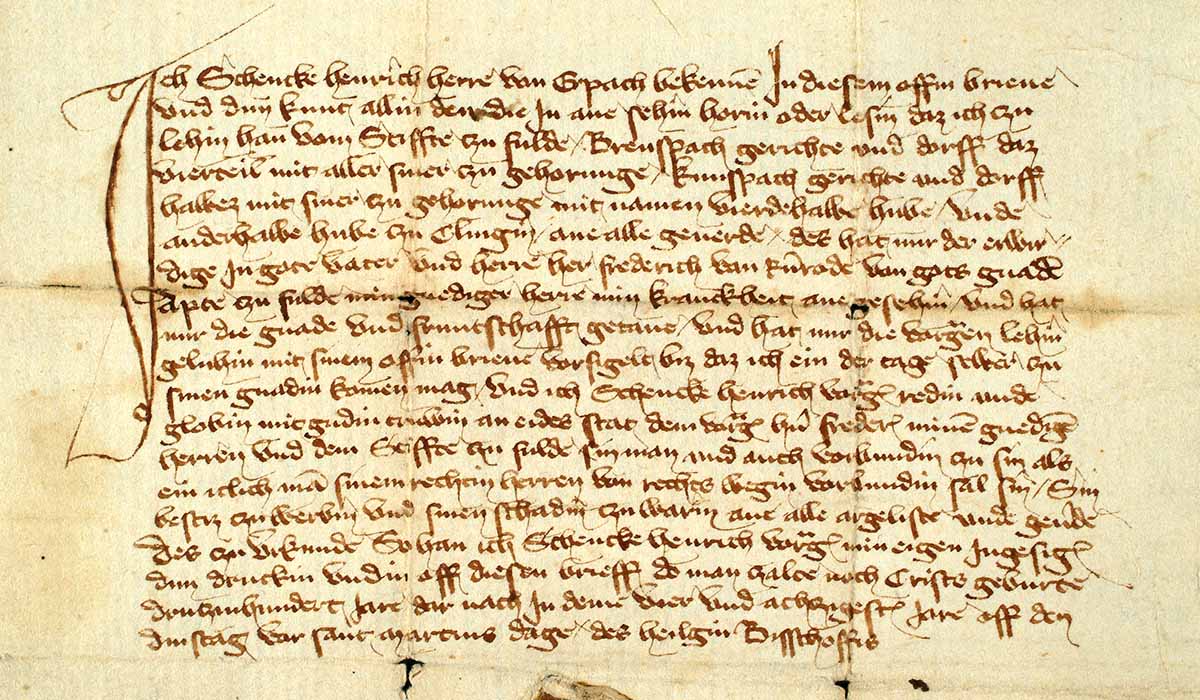 Ich Schencke heinrich herre von Erpach bekennē In diesem offin brieue
vnd dun kunt allin den die In ane sehin horin oder lesin daz ich czu
lehin han vom Stiffte czu fulde / Brenspach gerichte vnd dorff daz
vierteil mit aller siner czu gehorunge / kunspach gerichte vnd dorff
halbez mit siner czu gehorunge mit namen vierdehalbe hube vnde
anderhalbe hube czu Clingin ane alle geuerde / des hat mir der erwir
dige In gote vater vnd herre her frederich von gots gnadē
Apte czu fulde min gnediger herre min kranckheit ane gesehin vnd hat
mir die gnade vnd fruntschafft getane / vnd hat mir die vorgen lehin
geluhin mit sinem offin brieue vorsigelt biz daz ich ein der tage selber czu
sinen gnadin komen mag / vnd ich Schencke henrich vorg redin vnde
globin mit gudin truwin an eides stat dem vorg hn freder minē gnedigē
herren vnd dem Stiffte czu fulde sin man vnd auch vorbundin zu sin als
ein iclich mā sinem rechtin herren von rechts wegin vorbundin sal sin / Sin
bestz czu werbin vnd sinen schadin czu warin ane alle argeliste vnde geūde
Des czu vrkunde So han ich Schencke henrich vorg min eigen Ingesig
dun druckin vndin off diesen brieff do man czalte noch Crists geburte
druczinhundert Jare dar nach In deme vier vnd achczigest Jare off den
dinstag vor sant martins dage des heilgin Bisschoffis